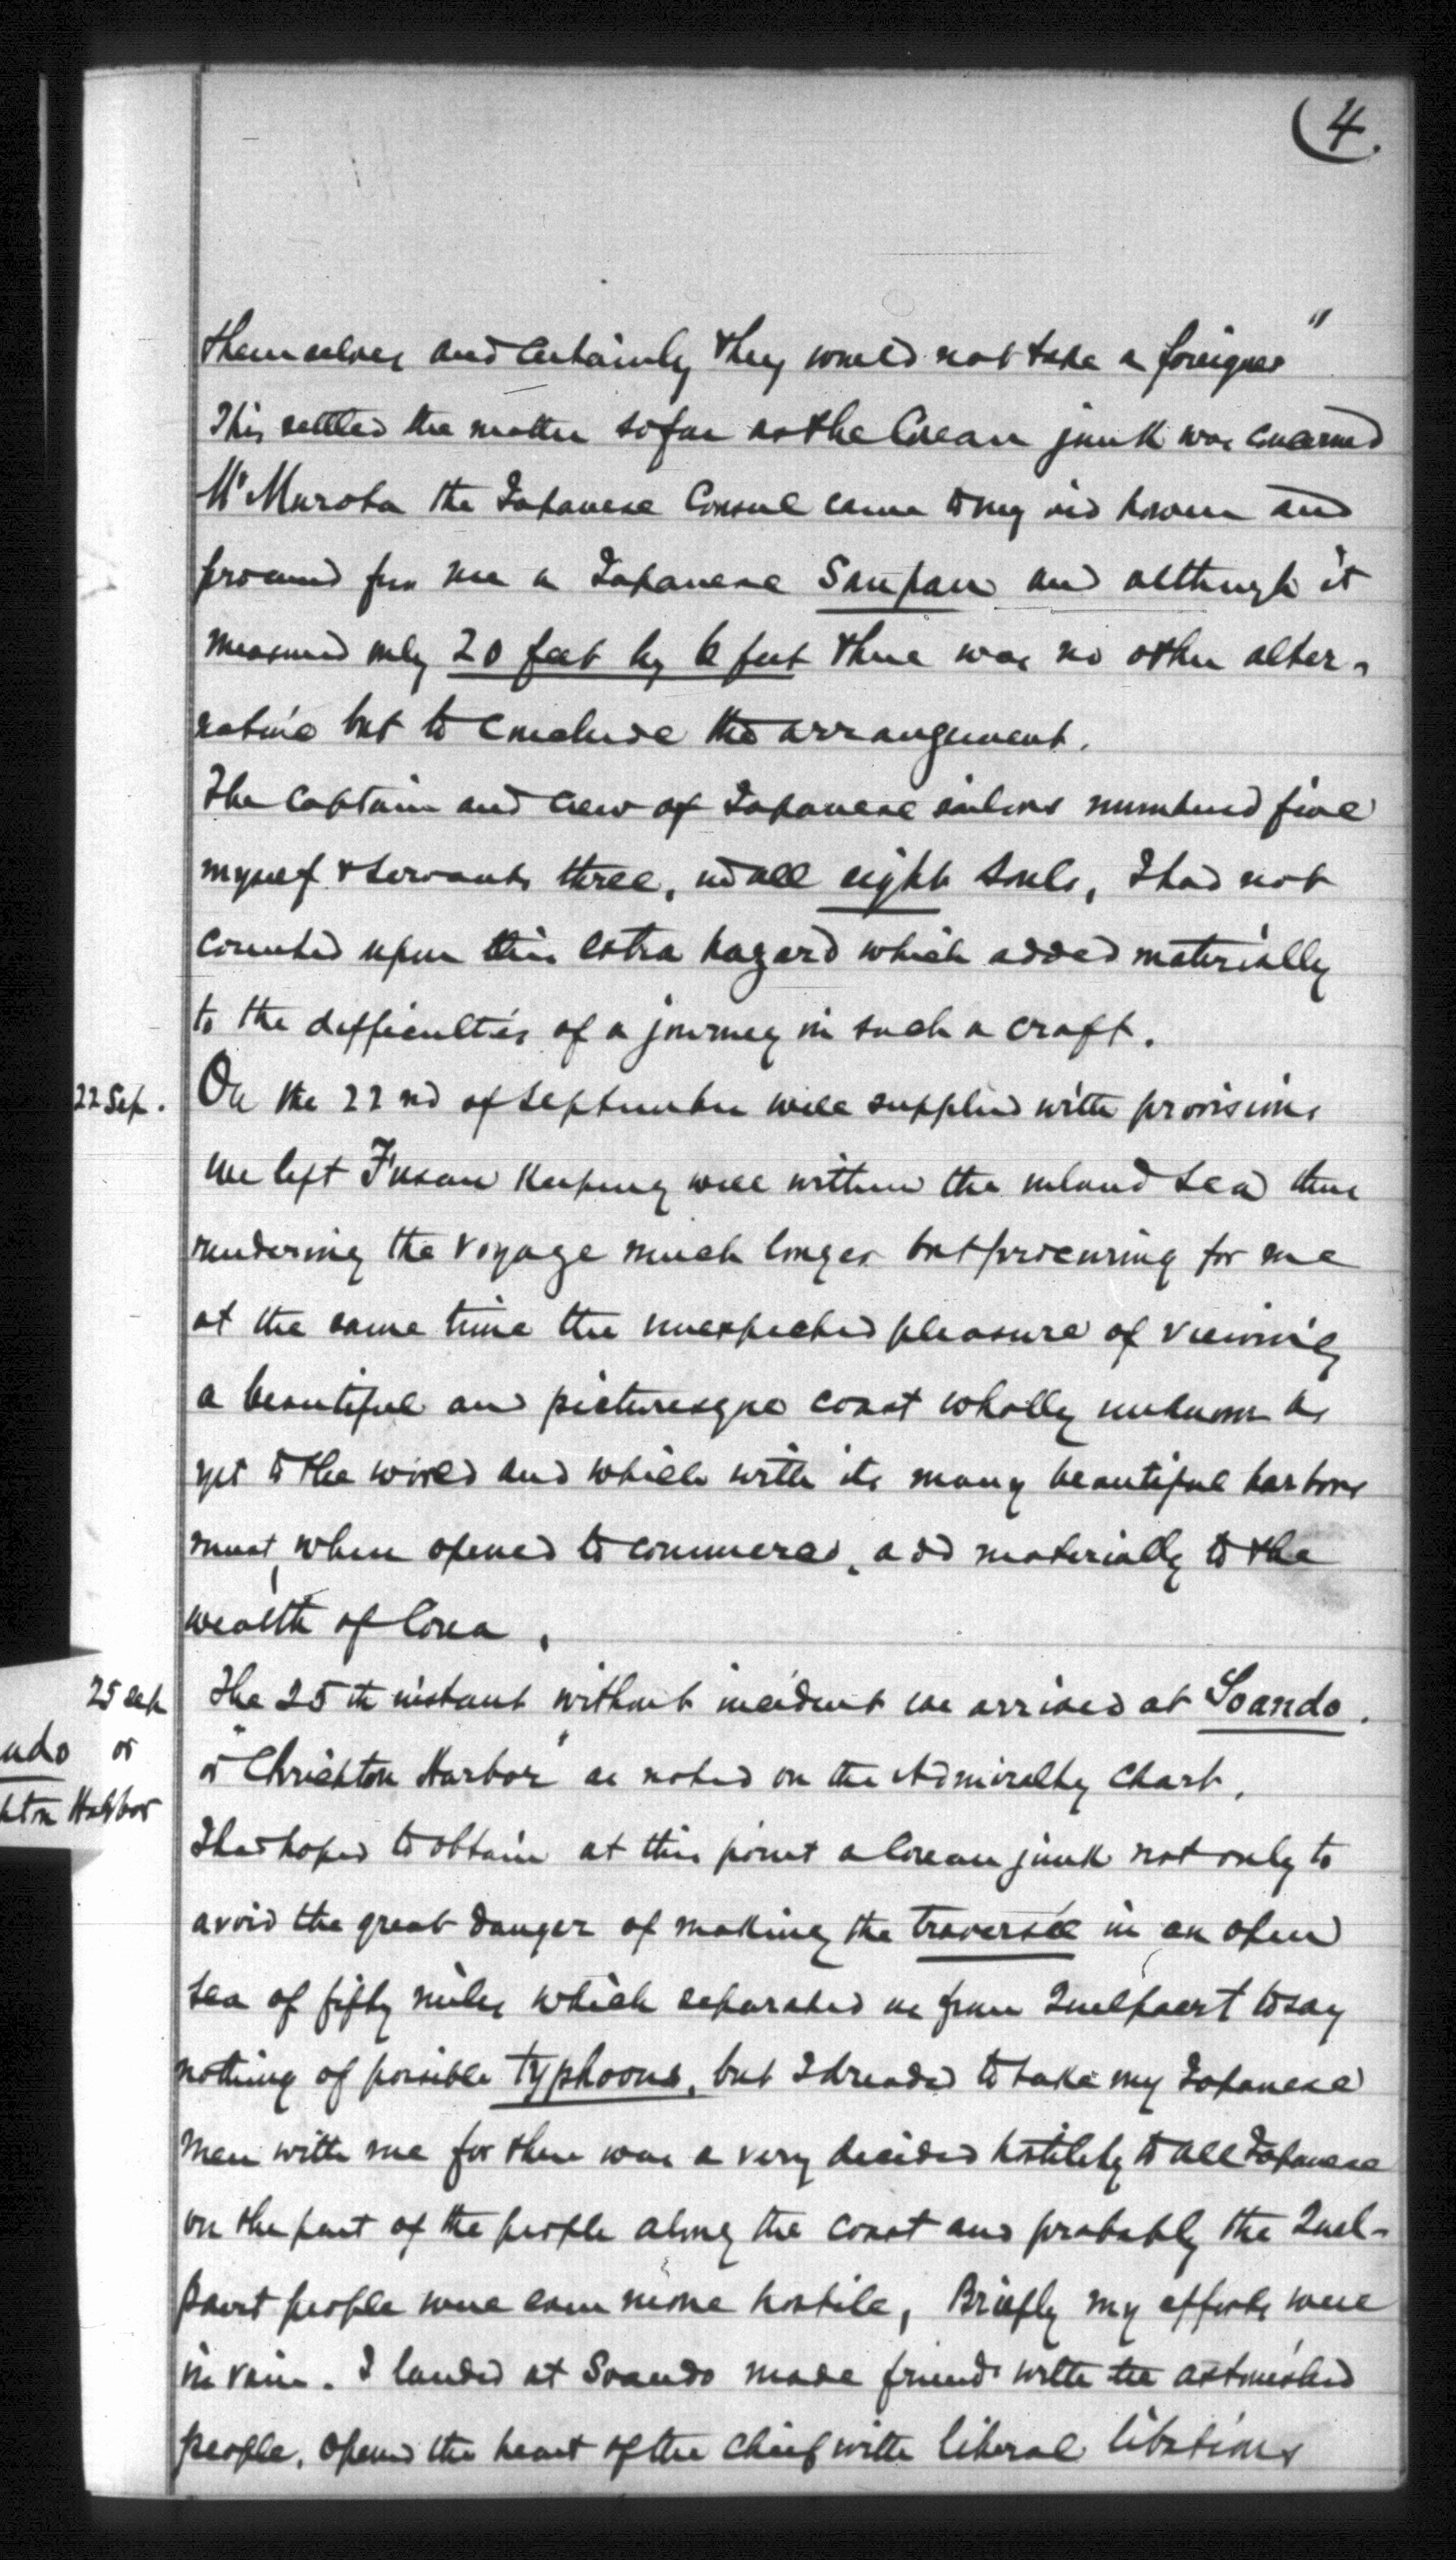 (4.
themselves and certainly they would not take a foreigner"
This settled the matter so far as the Corean junk was concerned
Mr Murota the Japanese Consul came to my aid however and
procured for me a Japanese Sampan and although it
measured only 20 feet by 6 feet there was no other alter-
native but to conclude the arrangement.
The Captain and crew of Japanese sailors numbered five
myself & servants three, in all eight souls, I had not
counted upon this extra hazard which added materially
to the difficulties of a journey in such a craft.
22 Sep.
On the 22nd of September well supplied with provisions
we left Fusan keeping well within the inland sea thus
rendering the voyage much longer but procuring for me
at the same time the unexpected pleasure of viewing
a beautiful and picturesque coast wholly unknown as
yet to the world and which with its many beautiful harbors
must, when opened to commerce, add materially to the
wealth of Corea.
25 Sep
ndo or
hton Harbor
The 25th instant without incident we arrived at Soando.
or "Chrichton Harbor" as noted on the Admiralty Chart.
I had hoped to obtain at this point a Corean junk not only to
avoid the great danger of making the traversée in an open
sea of fifty miles which separated us from Quelpaert to say
nothing of possible typhoons, but I dreaded to take my Japanese
men with me for there was a very decided hostility to all Japanese
on the part of the people along the coast and probably the Quel-
paert people were even more hostile, Briefly my efforts were
in vain. I landed at Soando made friends with the astonished
people, opened the heart of the Chief with liberal libations